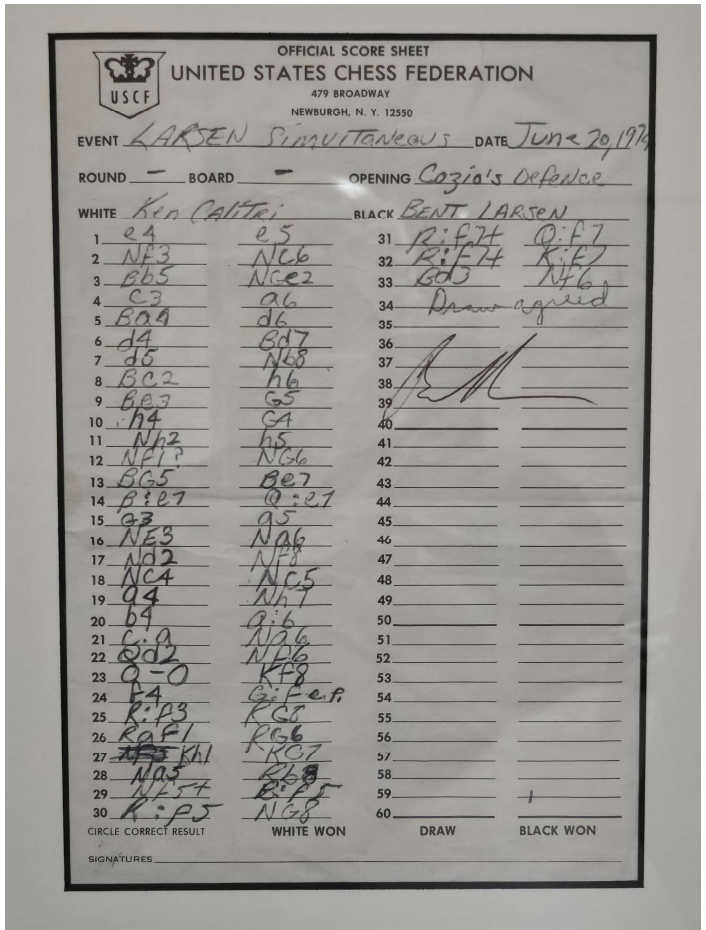 OFFICIAL SCORE SHEET
UNITED STATES CHESS FEDERATION
USCF
479 BROADWAY
NEWBURGH, N. Y. 12550
EVENT LARSEN Simultaneous DATE June 20, 1974
ROUND – BOARD – OPENING Cozio's Defence
WHITE Ken CAlitri BLACK BENT LARSEN
1 e4 e5
2 NF3 NC6
3 Bb5 NGe2
4 C3 a6
5 Ba4 d6
6 d4 Bd7
7 d5 Nb8
8 BC2 h6
9 Be3 G5
10 h4 G4
11 Nh2 h5
12 NF1? NG6
13 BG5 Be7
14 B:e7 Q:e7
15 G3 a5
16 NE3 Na6
17 Nd2 NF8
18 NC4 NC5
19 a4 Nh7
20 b4 a:b
21 C:a Na6
22 Qd2 NF6
23 O-O KF8
24 F4 G:F e.p.
25 R:f3 KG8
26 RaF1 RG6
27 Kh1 KG7
28 Na5 Rb8
29 NF5+ B:F5
30 R:F5 NG8
31 R:F7+ Q:F7
32 R:F7+ K:F7
33 Bd3 Nf6
34 Draw agreed
35
36
37
38
39
40
41
42
43
44
45
46
47
48
49
50
51
52
53
54
55
56
57
58
59
60
CIRCLE CORRECT RESULT WHITE WON DRAW BLACK WON
SIGNATURES